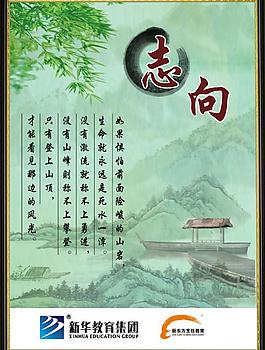 志向
如果惧怕前面险峻的山岩，
生命就永远是死水一潭。
没有激流就称不上勇进，
没有山峰则称不上攀登。
只有登上山顶，
才能看见那边的风光。
新华教育集团
XINHUA EDUCATION GROUP
新东方烹饪教育